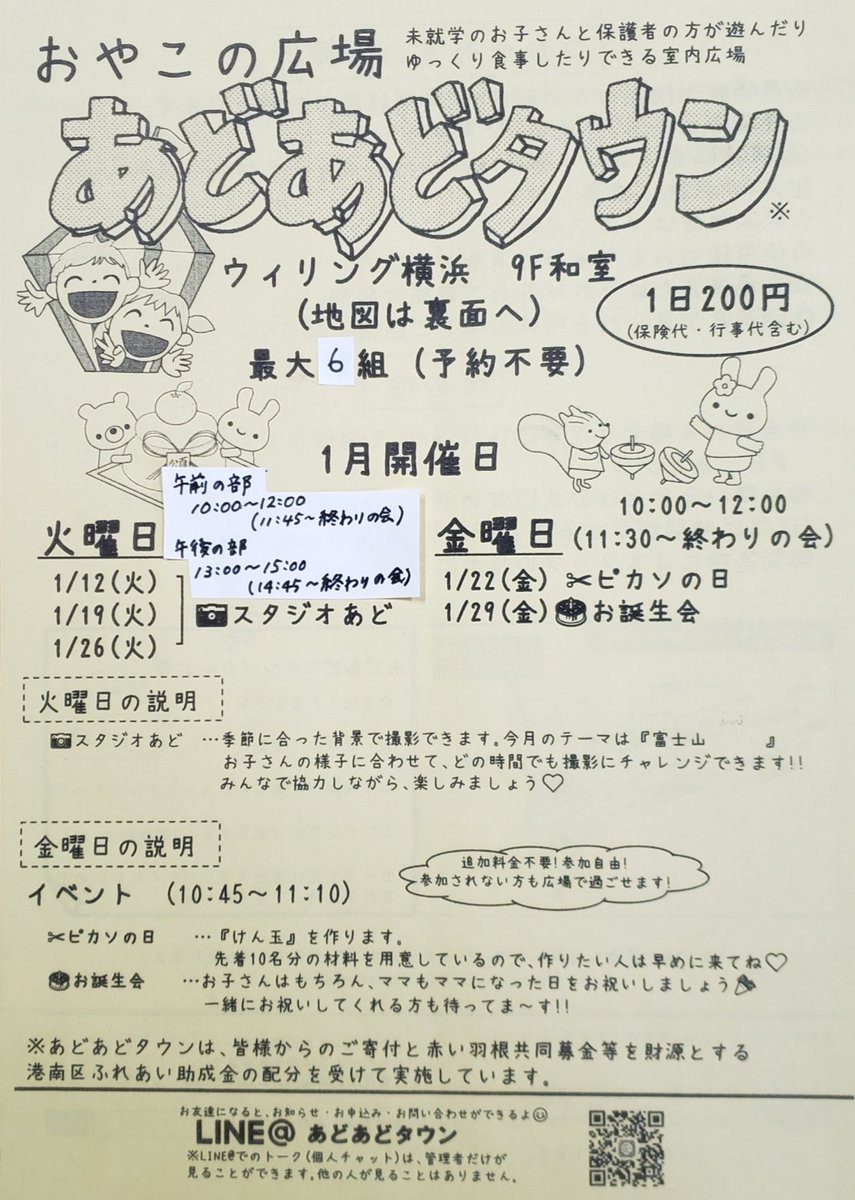 おやこの広場
未就学のお子さんと保護者の方が遊んだり
ゆっくり食事したりできる室内広場
あどあどタウン※
ウィリング横浜 9F和室
(地図は裏面へ)
最大6組(予約不要)
1日200円
(保険代・行事代含む)
1月開催日
午前の部
10:00〜12:00
(11:45〜終わりの会)
午後の部
13:00〜15:00
(14:45〜終わりの会)
火曜日
1/12(火)
1/19(火)
1/26(火)
スタジオあど
10:00〜12:00
金曜日(11:30〜終わりの会)
1/22(金) ✂ピカソの日
1/29(金) お誕生会
火曜日の説明
スタジオあど …季節に合った背景で撮影できます。今月のテーマは『富士山 』
お子さんの様子に合わせて、どの時間でも撮影にチャレンジできます!!
みんなで協力しながら、楽しみましょう♡
金曜日の説明
追加料金不要!参加自由!
参加されない方も広場で過ごせます!
イベント (10:45〜11:10)
✂ピカソの日 …『けん玉』を作ります。
先着10名分の材料を用意しているので、作りたい人は早めに来てね♡
お誕生会 …お子さんはもちろん、ママもママになった日をお祝いしましょう
一緒にお祝いしてくれる方も待ってま〜す!!
※あどあどタウンは、皆様からのご寄付と赤い羽根共同募金等を財源とする
港南区ふれあい助成金の配分を受けて実施しています。
お友達になると、お知らせ・お申込み・お問い合わせができるよ
LINE@ あどあどタウン
※LINE@でのトーク(個人チャット)は、管理者だけが
見ることができます。他の人が見ることはありません。